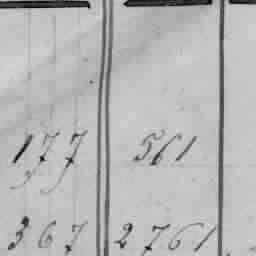 177 561
367 2761